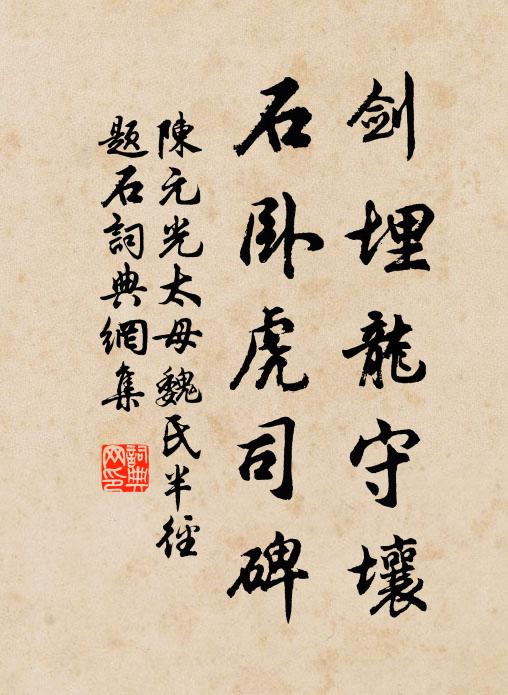 剑埋龍守壤
石卧虎司碑
陳元光太母魏氏半徑
題石詞典網集
詞典网印